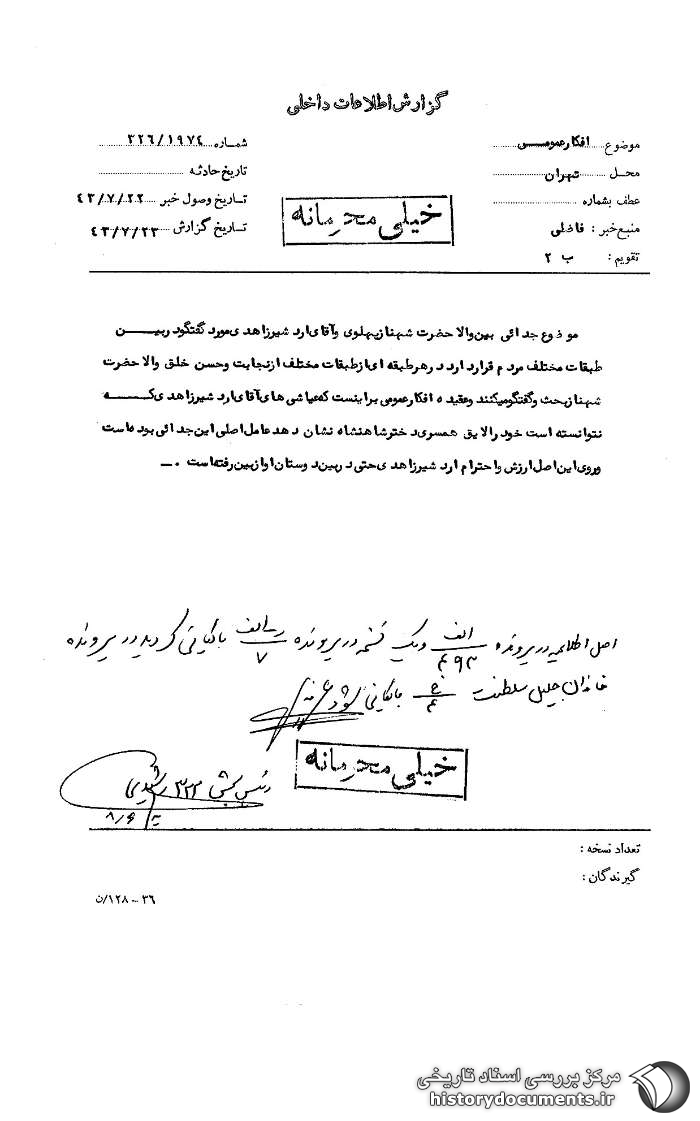 گزارش اطلاعات داخلی
موضوع افکار عمومی
شماره ۳۲۶/۱۹۷۴
محل تهران
تاریخ حادثه
عطف بشماره
تاریخ وصول خبر ۴۳/۷/۲۲
منبع خبر : فاضلی
تاریخ گزارش ۴۳/۷/۲۳
تقویم : ب ۲
خیلی محرمانه
موضوع جدائی بین والاحضرت شهناز پهلوی و آقای اردشیر زاهدی مورد گفتگو در بین
طبقات مختلف مردم قرار دارد در هر طبقه ای از طبقات مختلف از نجابت و حسن خلق والاحضرت
شهناز بحث و گفتگو میکنند و عقیده افکار عمومی براینست که عیاشی های آقای اردشیر زاهدی که
نتوانسته است خود را لایق همسری دختر شاهنشاه نشان دهد عامل اصلی این جدائی بوده است
و روی این اصل ارزش و احترام اردشیر زاهدی حتی در بین دوستان او از بین رفته است . ـ
اصل اطلاعیه در پرونده الف ۴۹۳ و یک نسخه در پرونده ر-الف ۷ بایگانی گردید در پرونده
خاندان جلیل سلطنت ع ۴ بایگانی شود
خیلی محرمانه
رئیس بخش ۳۲۲ رشیدی
۸/۶
تعداد نسخه :
گیرندگان :
۳۶ – ۱۲۸/ن
مرکز بررسی اسناد تاریخی
historydocuments.ir